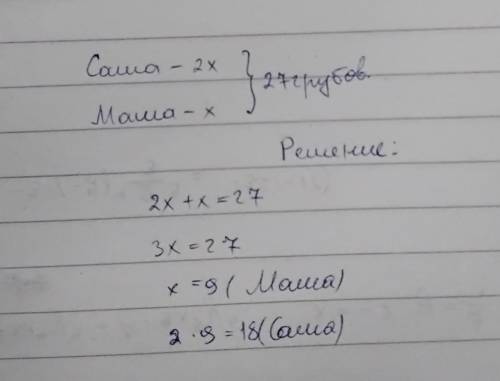 Саша - 2x } 27 грубов.
Маша - x
Решение:
2x + x = 27
3x = 27
x = 9 ( Маша)
2 · 9 = 18(Саша)